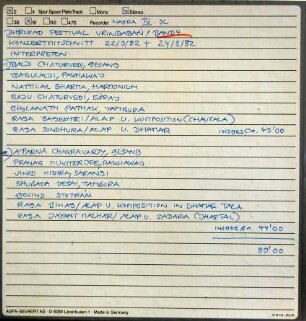 2 4 Spur/Spoor/Piste/Track Mono Stereo
9.5 19 38 4.75 Recorder NAGRA IV SL
DHRUPAD FESTIVAL VRINDABAN / BAND 4
KONZERTMITSCHNITT 22/3/82 + 24/3/82
INTERPRETEN
BALJI CHATURVEDI, GESANG
PAKHAWAJ
NATHILAL SHARMA, HARMONIUM
RAJU CHATURVEDI, ESRAJ
BHOLANATH PATHAK, TAMPURA
RAGA BAGESHRI / ALAP U. KOMPOSITION (CHAUTALA)
RAGA SINDHURA / ALAP U. DHAMAR INSGES. CA. 45'00
APARNA CHAKRAVARTY, GESANG
PRANAB MUKHERJEE, PAKHAWAJ
VINOD MISHRA, SARANGI
SHUBADA DESAI, TAMPURA
GOVIND STOTRAM
RAGA BIHAG / ALAP U. KOMPOSITION IN DHAMAR TALA
RAGA JAYANT MALHAR / ALAP U. SADARA (JHAPTAL)
INSGES. CA. 44'00
89'00
AGFA-GEVAERT AG · D-5090 Leverkusen 1 · Made in Germany